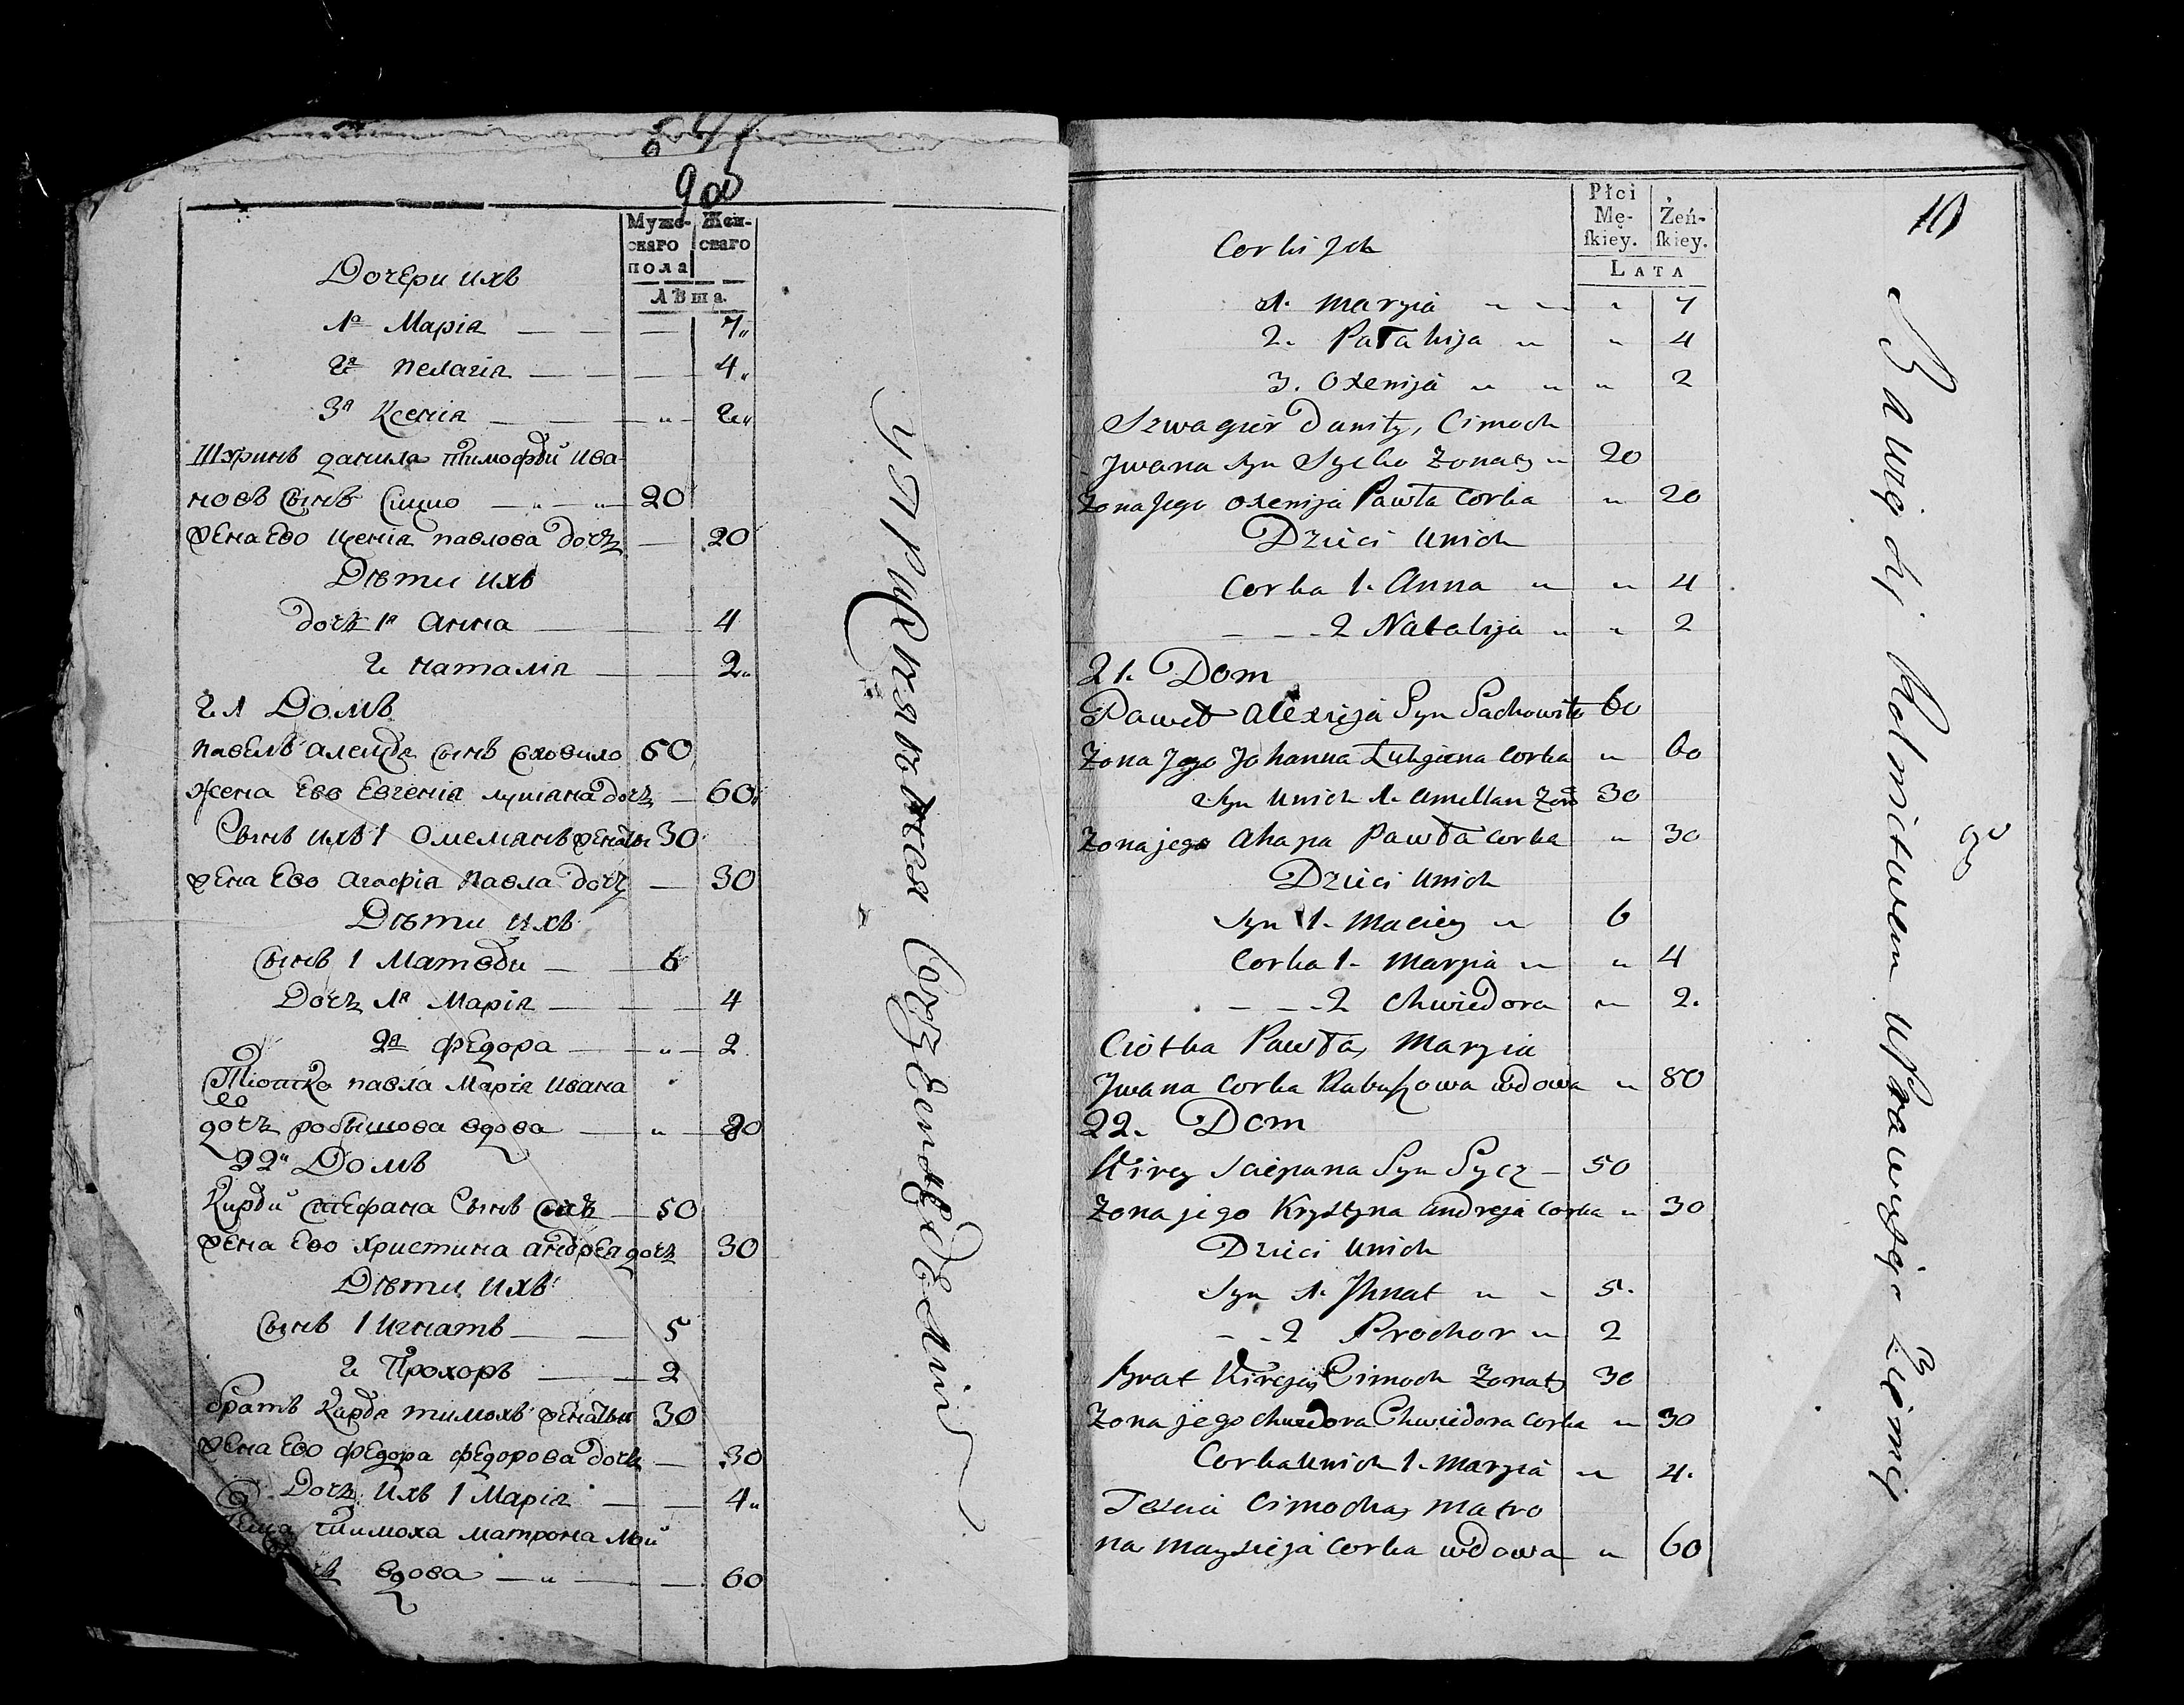 900
Мужескаго пола
Женскаго
Лѣта
Дочери ихъ
1я Марія — — — 7
2я пелагія — — — 4
3я Ксенія — — " — 2
Шуринъ данила тимофѣй ива-
новъ сынъ Сицко — " — " — 20
жена Ево Ксенія павлова дочь — 20
Дѣти ихъ
дочь 1я анна — — — 4
2 наталія — — 2
21 Домъ
павелъ алеѯѣя сынъ 60
жена Ево Евгенія лукіана дочь — 60
Сынъ ихъ 1 Омеліанъ женатъ 30
жена Ево агафія павла дочь — 30
Дѣти ихъ
Сынъ 1 Матвѣи — — 6
Дочь 1я Марія — — — 4
2я федора — — " — 2
Тіотка павла Марія ивана
дочь робышова вдова — " — 80
22" Домъ
Кирѣй стефана Сынъ — 50
жена Ево христина андрея дочь 30
Дѣти ихъ
Сынъ 1 игнатъ — — 5
2 Прохоръ — — 2
братъ Кирѣя тимохъ женатыи 30
жена Ево федора федорова дочь — 30
Дочь ихъ 1 Марія — — 4
тимоха матрона
вдова — " — — 60
упражняются хлебопашествомъ
10
Płci Mę-
ſkiey.
Żeń-
ſkiey.
LATA
Corki Ich
1. Maryia " " " 7
2. Pałahija " " 4
3. Oxenija " " " 2
Szwagier Daniły, Cimoch
Jwana Syn Sycko Żonaty " 20
Żona Jego Oxenija Pawła Corka " 20
Dzieci Unich
Corka 1. Anna " " 4
— — 2 Natalija " " 2
21. Dom
Paweł Alexieja Syn 60
Żona Jego Johanna Łukjana Corka " 60
Syn Unich 1. Amellan Żon 30
Żona jego Ahapa Pawła Corka " 30
Dzieci Unich
Syn 1. Maciey " 6
Corka 1. Maryia " " 4
— — 2 Chwiedora " 2.
Ciotka Pawła, Maryia
Jwana Corka Rabuszowa wdowa " 80
22. Dom
Kirey Sciepana Syn Sycz — 50
Żona jego Krystyna Andreja Corka " 30
Dzieci Unich
Syn 1. Jhnat " " 5.
— — 2 Prochor " 2
Brat Kireja, Cimoch Żonaty 30
Żona jego Chwedora Chwiedora Corka " 30
Corka Unich 1. Maryia " 4.
Teszcia Cimocha, Matro
na Corka wdowa " 60
Bawią się Rolnictwem Uprawują Ziemię